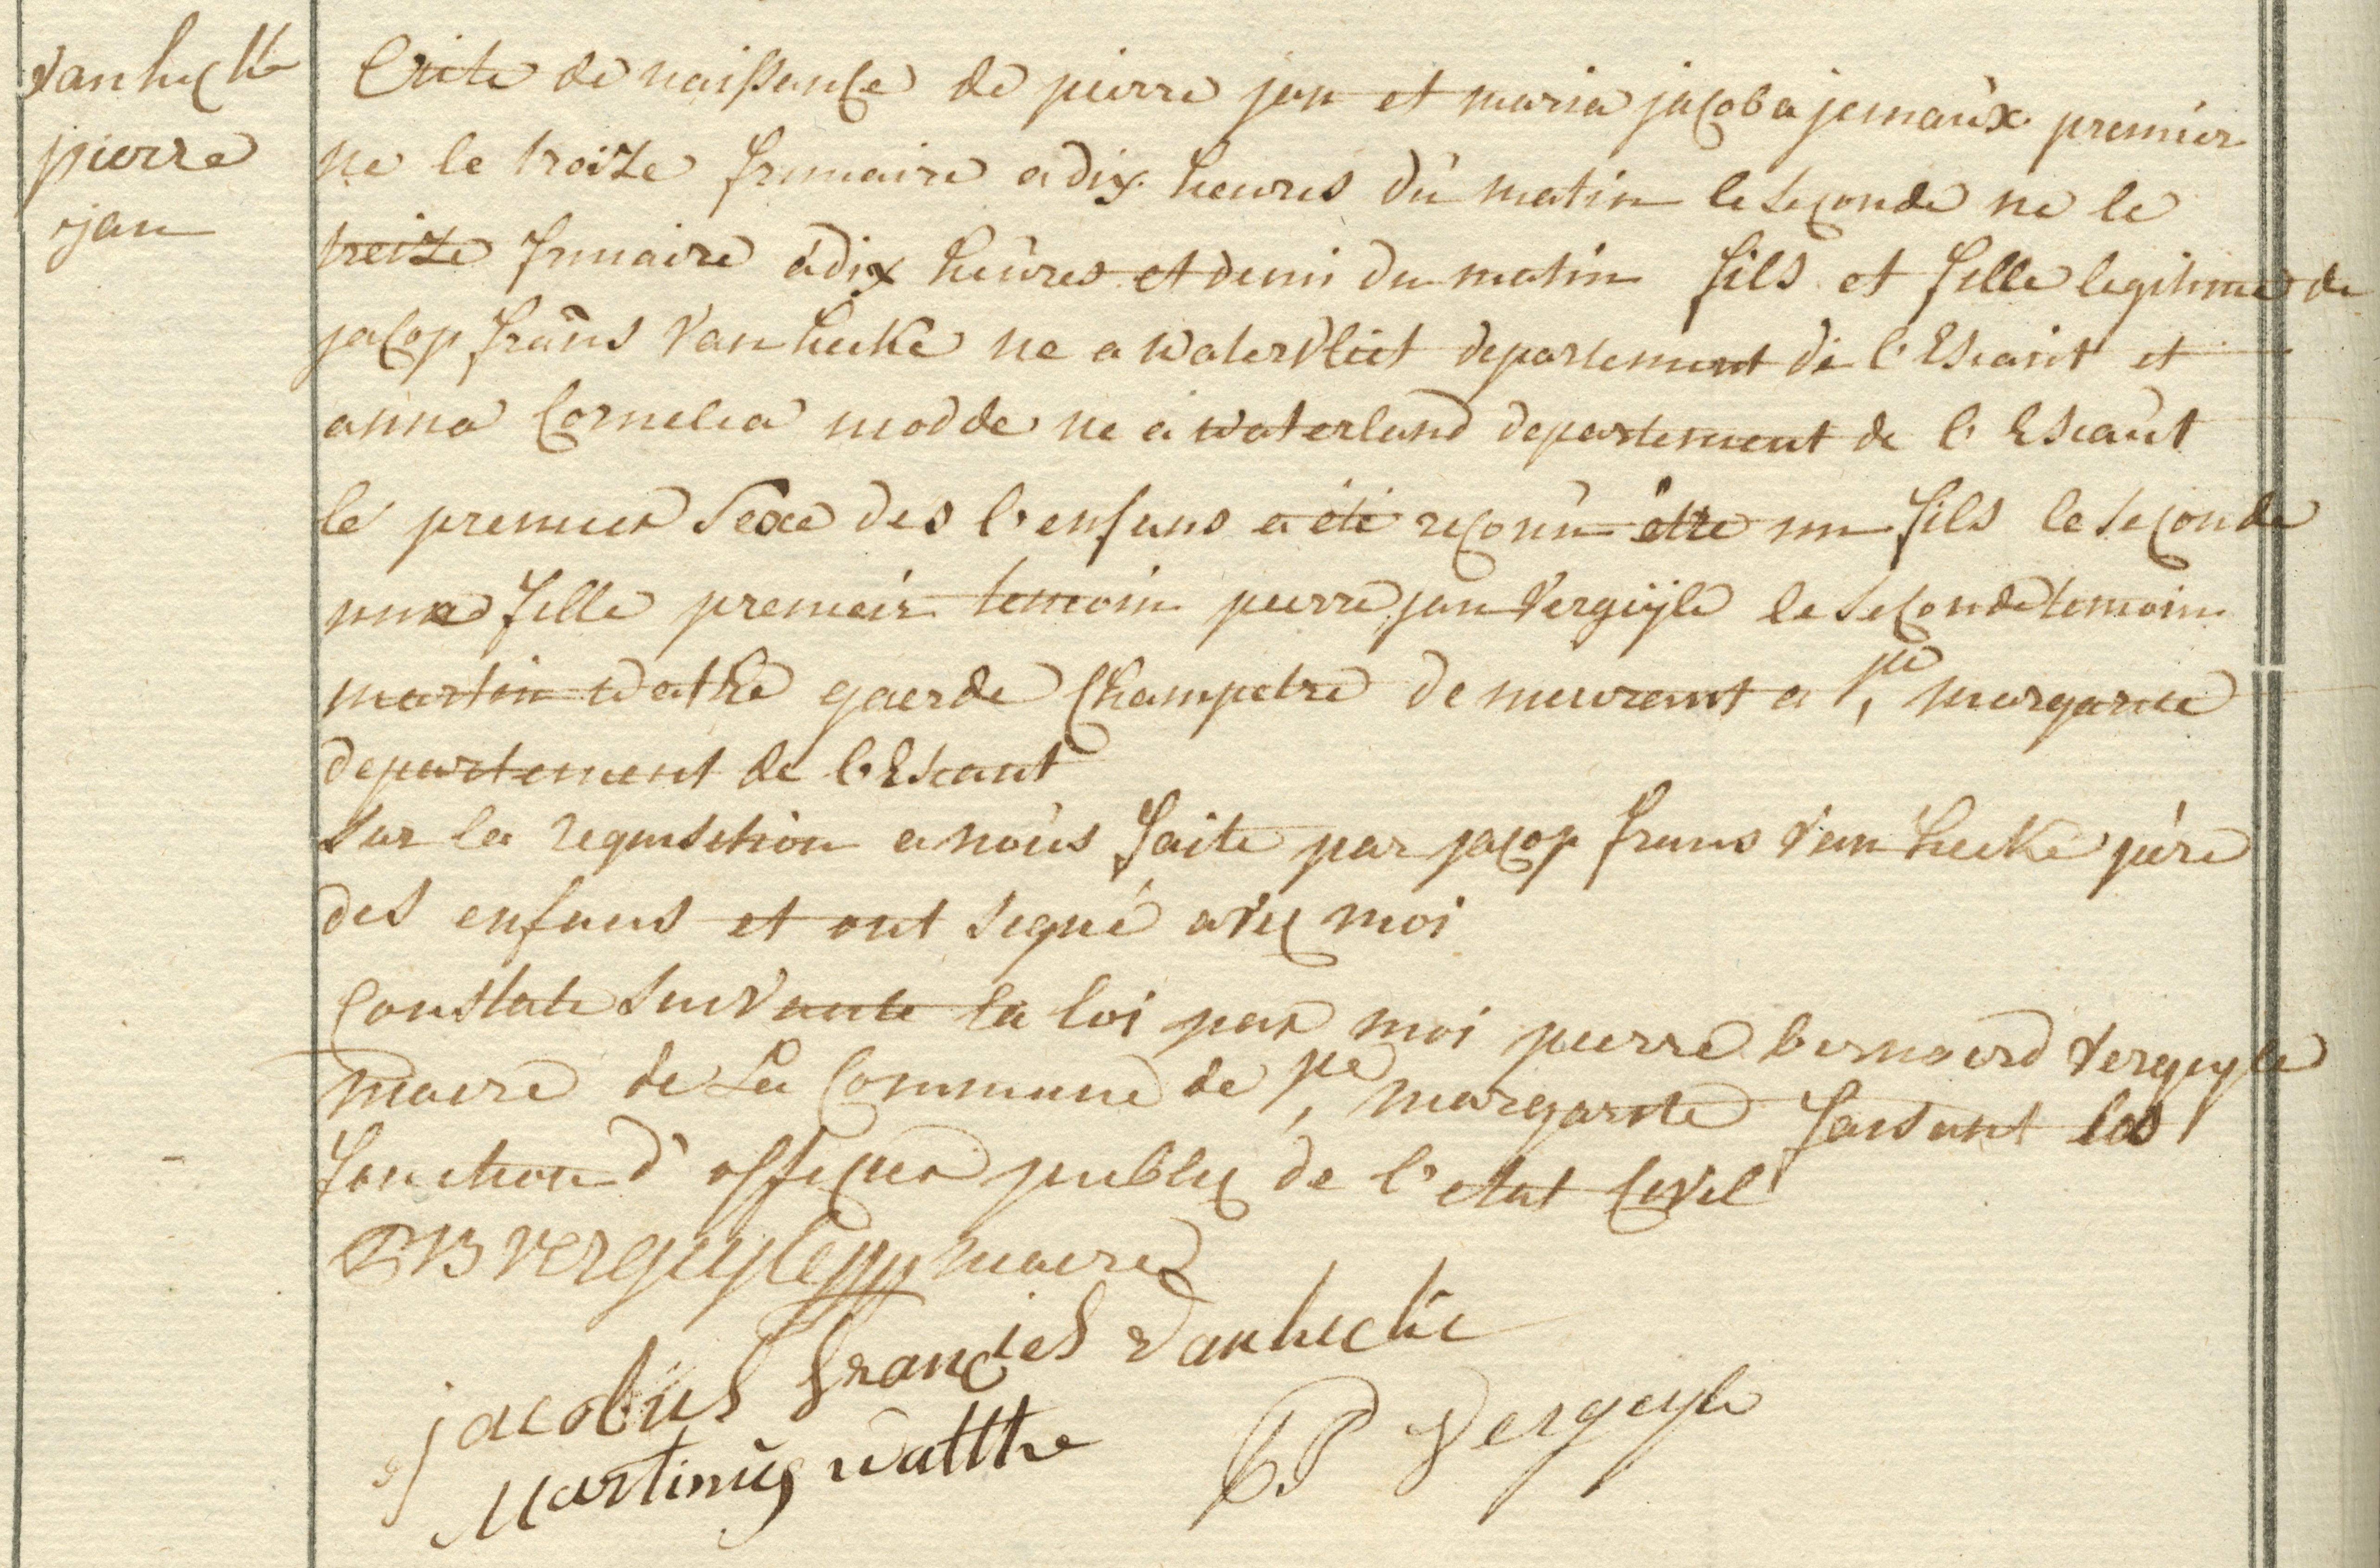 vanhecke
pierre
jan
Acte de naissence de pierre jan et maria jacoba jemaux premier
ne le treize frimaire a dix heures du matin le seconde ne le
treize frimaire a dix heures et demi du matin fils et fille legitime de
jacop frans Van hecke ne a watervliet departement de l'Escaut et
anna Cornelia modde ne a waterland departement de l'Escaut
le premier sexe des l'enfans a été reconu être un fils le seconde
une fille premeir temoin pierre jan Vergüyle le seconde temoin
martin watthe gaerde Champetre demeurent a Ste margarite
departement de l'Escaut
Sur la requisition a nous faite par jacop frans Van hecke père
des enfans et ont signé avec moi
Constate suivante la loi par moi pierre bernaerd Vergeyle
maere de La Commune de Ste margarite faisant les
fonction d'officier public de l'etat Civil
PB Vergeyle maere
jacobüs Francies Vanhecke
Martinüs watthe
PJ Vergeyle